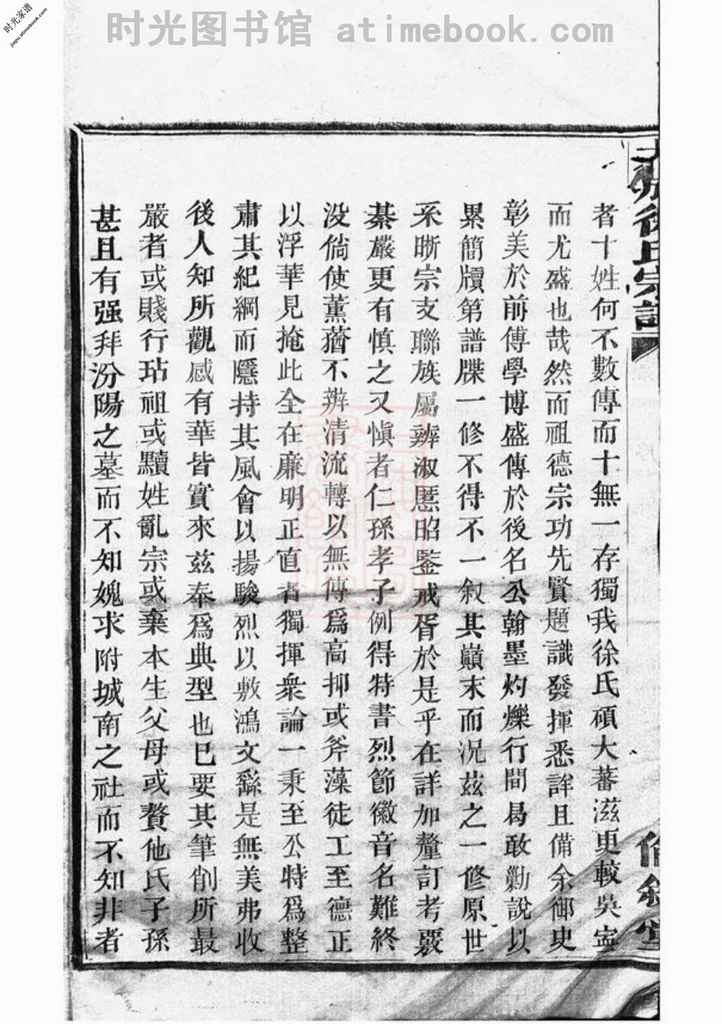 时光图书馆 atimebook.com
时光家谱
jiapu.atimebook.com
徐氏宗譜
者十姓何不數傳而十無一存獨我徐氏碩大蕃滋更較吳寧
而尤盛也哉然而祖德宗功先賢題識發揮悉詳且備余御史
彰美於前傅學博盛傳於後名公翰墨灼爍行間曷敢勦說以
累簡牘第譜牒一修不得不一叙其巔末而況茲之一修原世
系晣宗支聯族屬辨淑慝昭鑒戒胥於是乎在詳加釐訂考覈
綦嚴更有慎之又慎者仁孫孝子例得特書烈節徽音名難終
没倘使薰蕕不辨清流轉以無傳爲高抑或斧藻徒工至德正
以浮華見掩此全在廉明正直者獨揮衆論一秉至公特爲整
肅其紀綱而隱持其風會以揚駿烈以敷鴻文繇是無美弗收
後人知所觀感有華皆實來茲奉爲典型也已要其筆削所最
嚴者或賤行玷祖或黷姓亂宗或棄本生父母或贅他氏子孫
甚且有强拜汾陽之墓而不知媿求附城南之社而不知非者